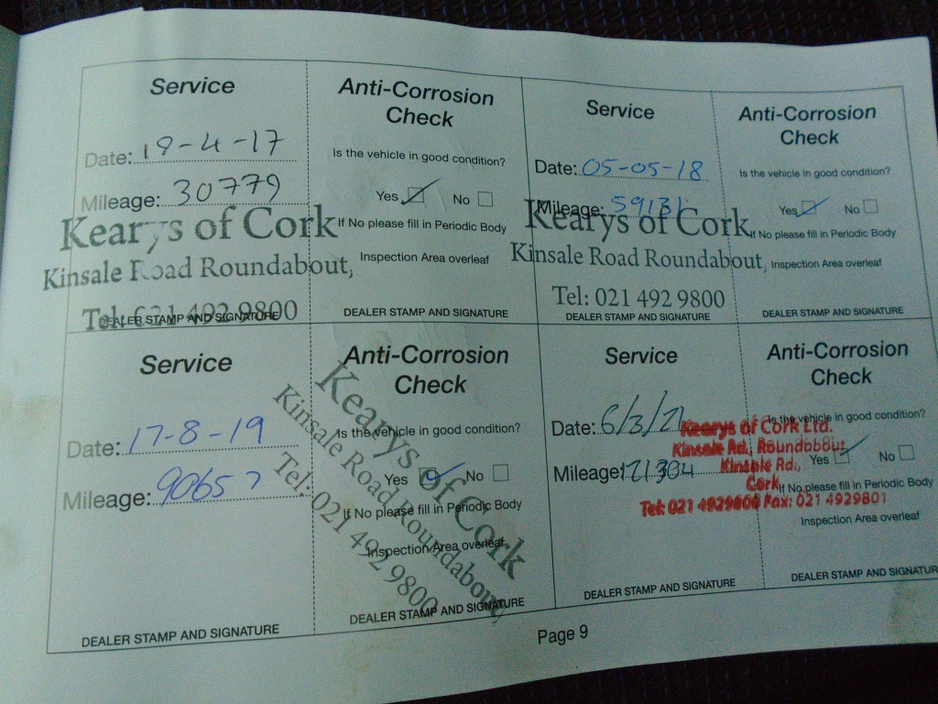 Service
Date: 19-4-17
Mileage: 30779
Kearys of Cork
Kinsale Road Roundabout,
Tel: 021 492 9800
DEALER STAMP AND SIGNATURE
Anti-Corrosion
Check
Is the vehicle in good condition?
Yes No
If No please fill in Periodic Body
Inspection Area overleaf
DEALER STAMP AND SIGNATURE
Service
Date: 05-05-18
Mileage: 59131
Kearys of Cork
Kinsale Road Roundabout,
Tel: 021 492 9800
DEALER STAMP AND SIGNATURE
Anti-Corrosion
Check
Is the vehicle in good condition?
Yes No
If No please fill in Periodic Body
Inspection Area overleaf
DEALER STAMP AND SIGNATURE
Service
Date: 17-8-19
Mileage: 90657
DEALER STAMP AND SIGNATURE
Anti-Corrosion
Check
Is the vehicle in good condition?
Yes No
If No please fill in Periodic Body
Inspection Area overleaf
Kearys of Cork
Kinsale Road Roundabout,
Tel: 021 492 9800
DEALER STAMP AND SIGNATURE
Service
Date: 6/3/21
Mileage: 121304
Kearys of Cork Ltd.
Kinsale Rd., Roundabout
Kinsale Rd.,
Cork
Tel: 021 4929800 Fax: 021 4929801
DEALER STAMP AND SIGNATURE
Anti-Corrosion
Check
Is the vehicle in good condition?
Yes No
If No please fill in Periodic Body
Inspection Area overleaf
DEALER STAMP AND SIGNATURE
Page 9